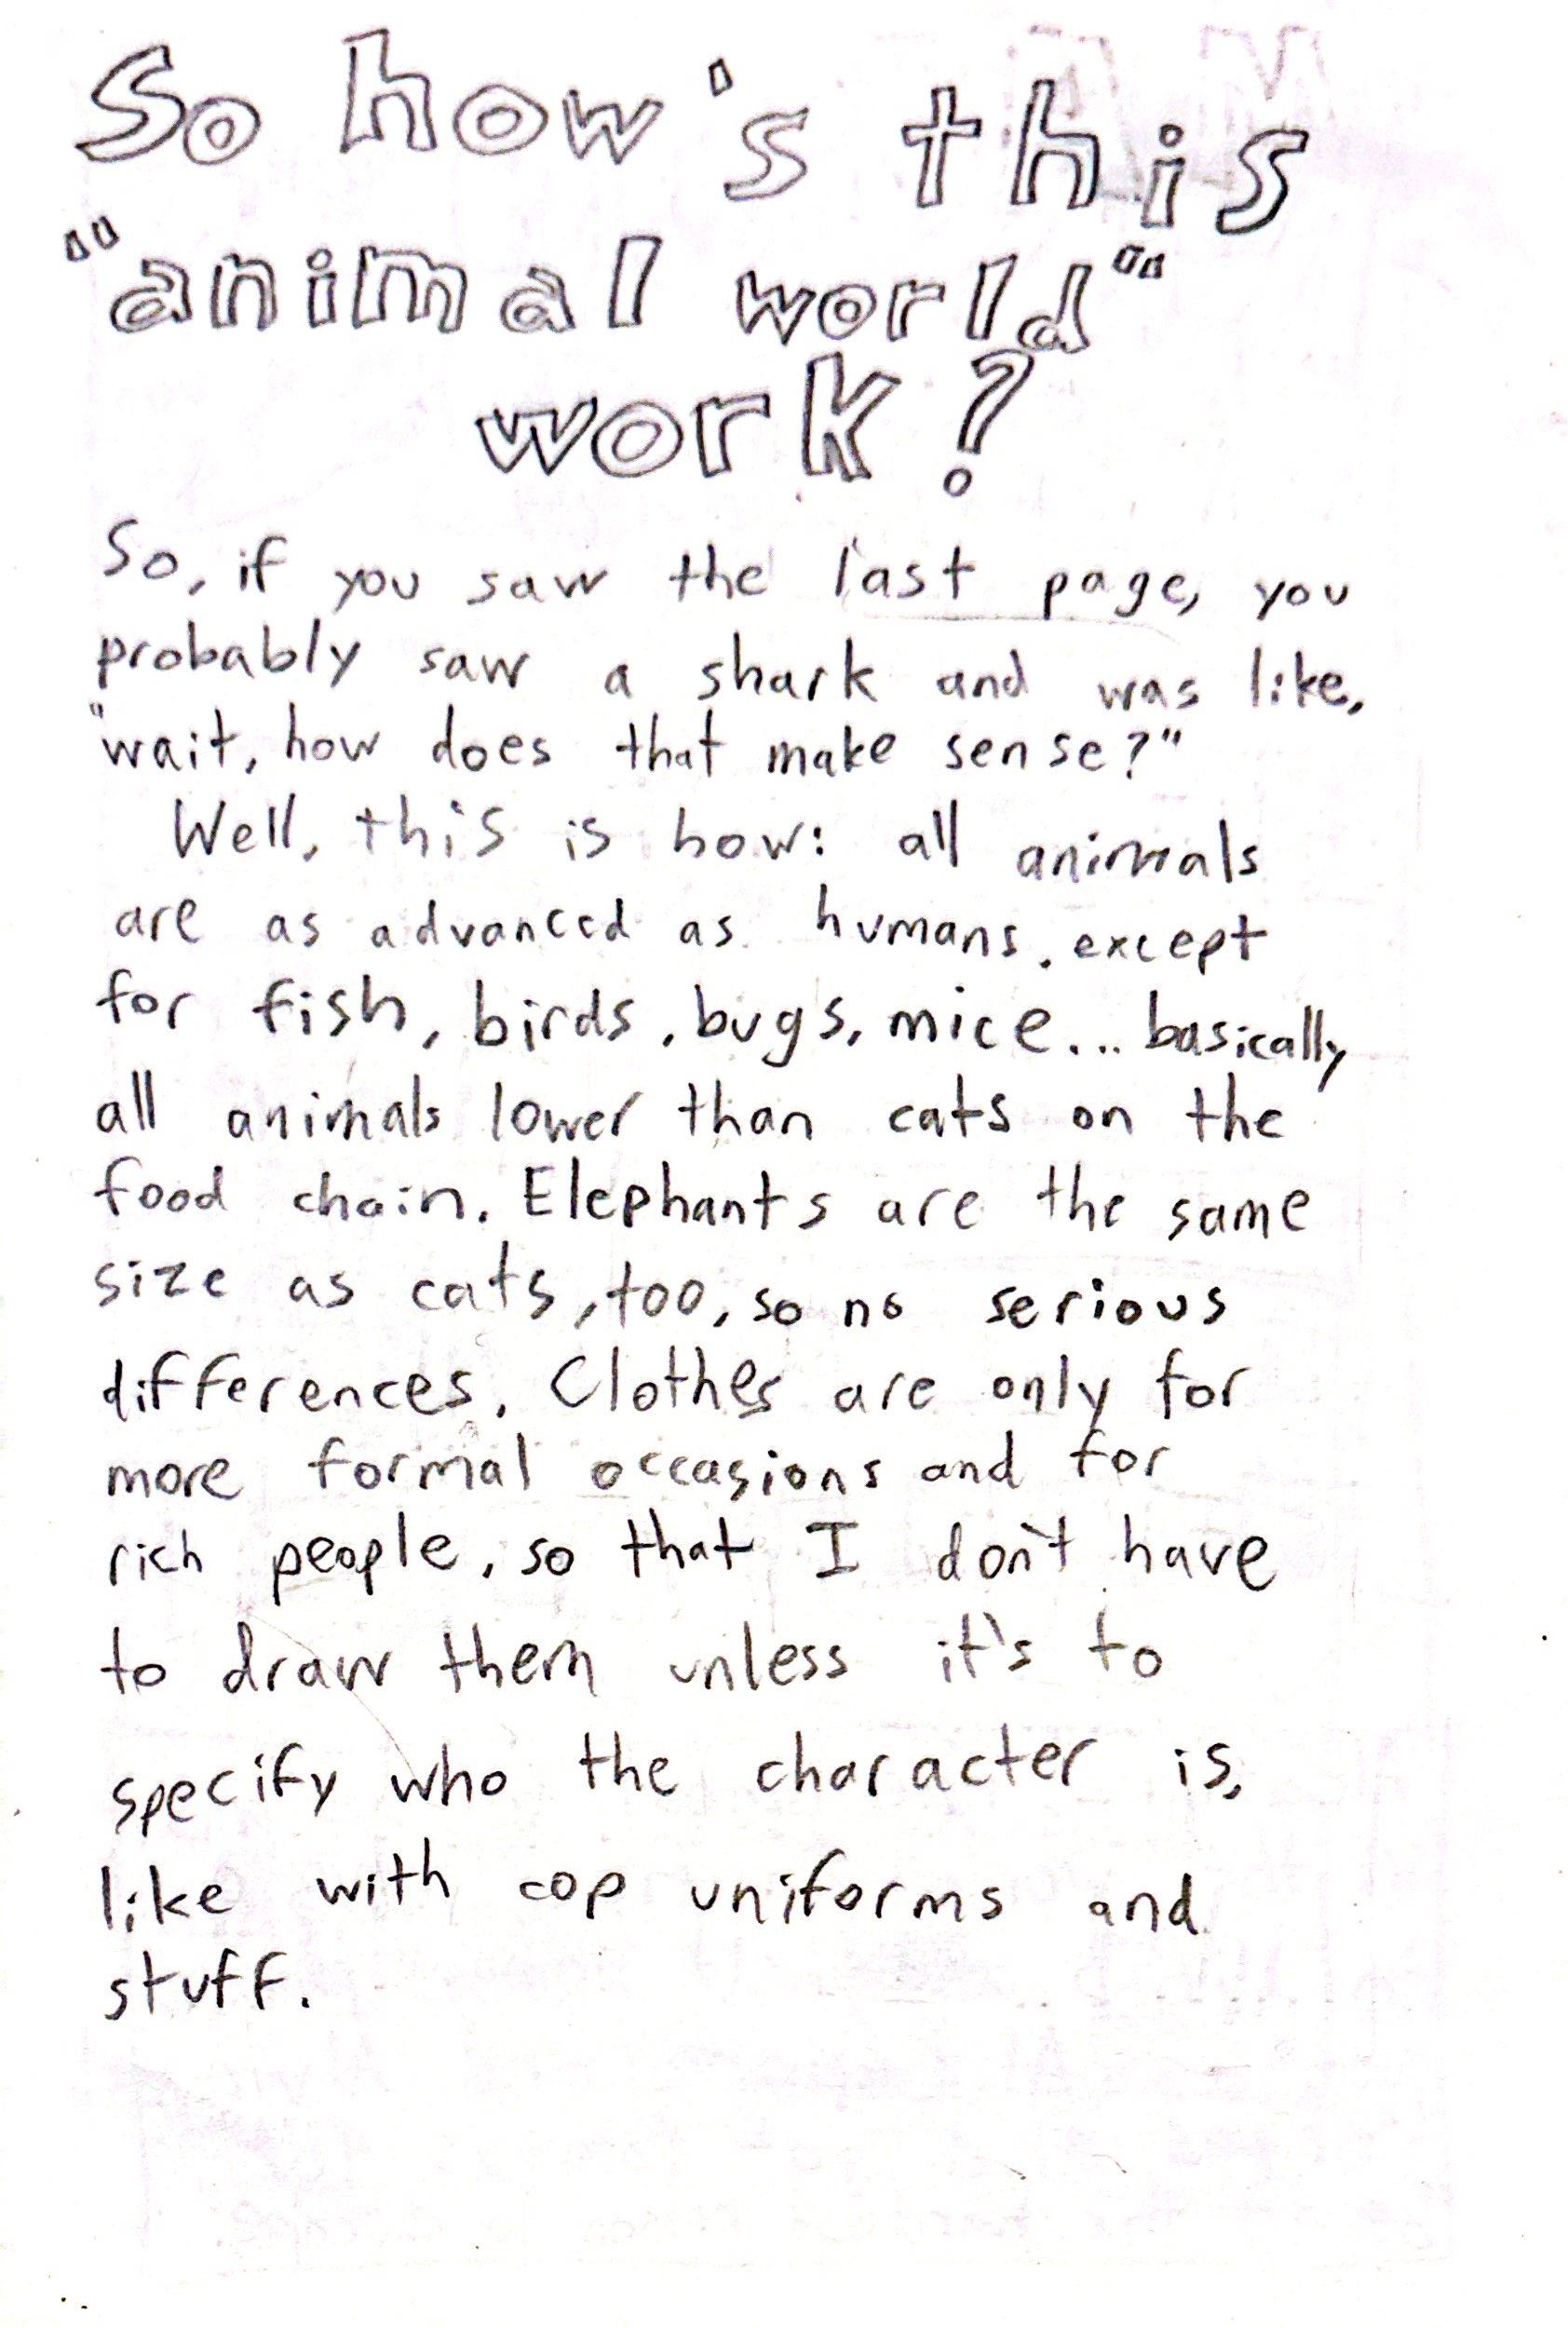 So how's this
"animal world"
work?
So, if you saw the last page, you
probably saw a shark and was like,
"wait, how does that make sense?"
Well, this is how: all animals
are as advanced as humans. except
for fish, birds, bugs, mice... basically
all animals lower than cats on the
food chain. Elephants are the same
size as cats, too, so no serious
differences. Clothes are only for
more formal occasions and for
rich people, so that I don't have
to draw them unless it's to
specify who the character is,
like with cop uniforms and
stuff.